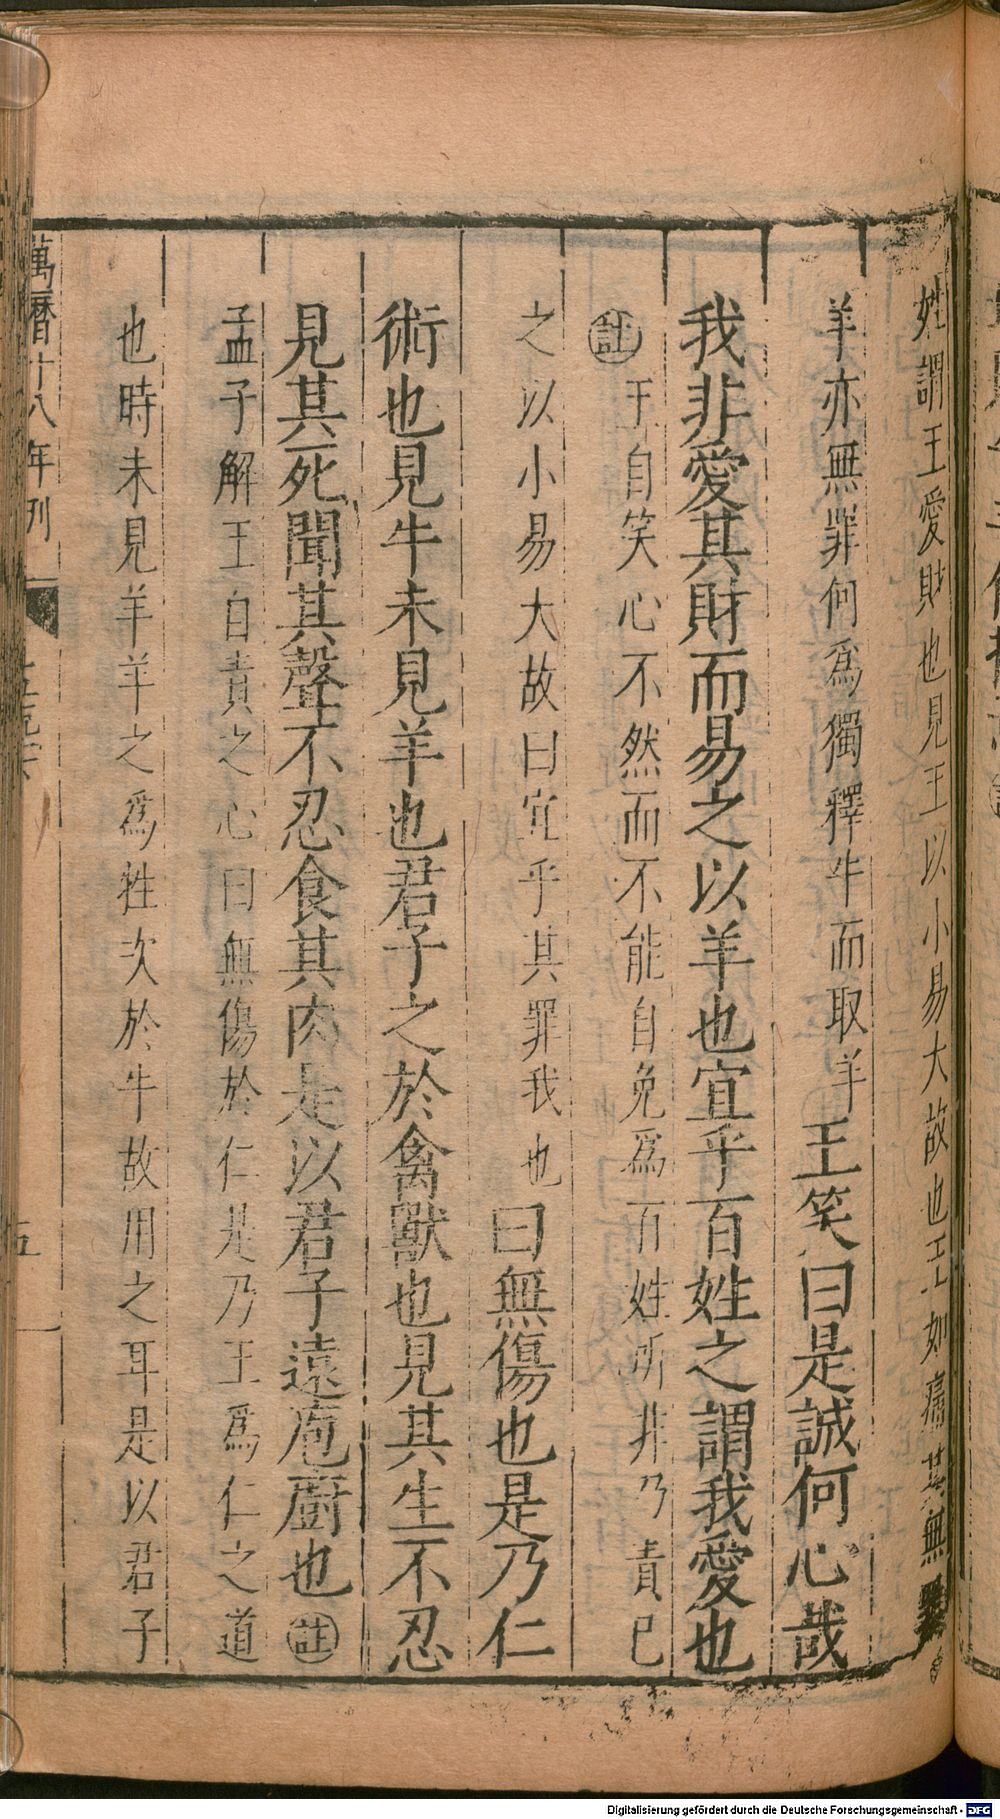 姓謂王愛財也見王以小易大故也王如痛其無罪
羊亦無罪何爲獨釋牛而取羊王笑曰是誠何心哉
我非愛其財而易之以羊也宜乎百姓之謂我愛也
註王自笑心不然而不能自免爲百姓所非乃責己
之以小易大故曰宜乎其罪我也曰無傷也是乃仁
術也見牛未見羊也君子之於禽獸也見其生不忍
見其死聞其聲不忍食其肉是以君子遠庖廚也註
孟子解王自責之心曰無傷於仁是乃王爲仁之道
也時未見羊羊之爲牲次於牛故用之耳是以君子
萬曆十八年刊
五
Digitalisierung gefördert durch die Deutsche Forschungsgemeinschaft - DFG